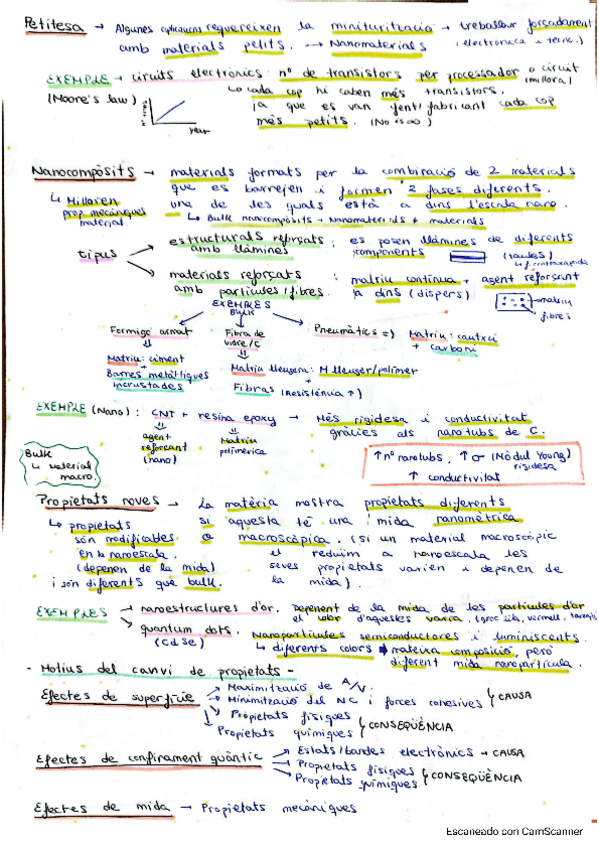 Petitesa → Algunes aplicacions requereixen la miniturització → treballar forçadament
amb materials petits. → Nanomaterials (electrònica i tecnic.)
EXEMPLE → circuits electrònics: nº de transistors per processador o circuit
(Moore's law) ↳ cada cop hi caben més transistors. (millora)
year
ja que es van fent/fabricant cada cop
més petits. (No és ∞)
Nanocompòsits → materials formats per la combinació de 2 materials
que es barrejen i formen 2 fases diferents.
↳ Milloren
prop mecàniques
material.
una de les quals està a dins l'escala nano.
↳ Bulk nanocompòsits → Nanomaterials + materials
tipus
estructurals reforçats : es posen llàmines de diferents
amb llàmines components (taules)
materials reforçats : matriu contínua + agent reforçant
amb partícules/fibres. a dins (dispers)
matriu
fibres
EXEMPLES
BULK
Formigó armat
Fibra de
vidre/C
Pneumàtics => Matriu: cautxú
+ carboni
Matriu: ciment
+
Barres metàl·liques
incrustades
Matriu lleugera: M lleuger/polímer
+
Fibras (resistència ↑)
EXEMPLE (Nano): CNT + resina epoxy → Més rigidesa i conductivitat
gràcies als nanotubs de C.
agent
reforçant
(nano)
Matriu
polimèrica
Bulk
↳ material
macro.
↑ nº nanotubs, ↑ σ (Mòdul Young)
rigidesa
↑ conductivitat
Propietats noves → La matèria mostra propietats diferents
↳ propietats
són modificables
en la nanoescala.
(depenen de la mida)
i són diferents que bulk.
si aquesta té una mida nanomètrica
o macroscòpica. (si un material macroscòpic
el reduim a nanoescala les
seves propietats varien i depenen de
la mida).
EXEMPLES → nanoestructures d'or. Depenent de la mida de les partícules d'or
el color d'aquestes varia. (groc, lila, vermell, taronja)
quantum dots. Nanopartícules semiconductores i luminiscents.
(CdSe) ↳ diferents colors → mateixa composició, però
diferent mida nanopartícula.
- Motius del canvi de propietats -
Efectes de superfície → Maximització de A/V.
→ Minimització del NC i forces cohesives } CAUSA
↳ Propietats físiques
Propietats químiques } CONSEQÜÈNCIA
Efectes de confinament quàntic → Estats/bandes electrònics → CAUSA
→ Propietats físiques
→ Propietats químiques } CONSEQÜÈNCIA
Efectes de mida → Propietats mecàniques
Escaneado con CamScanner